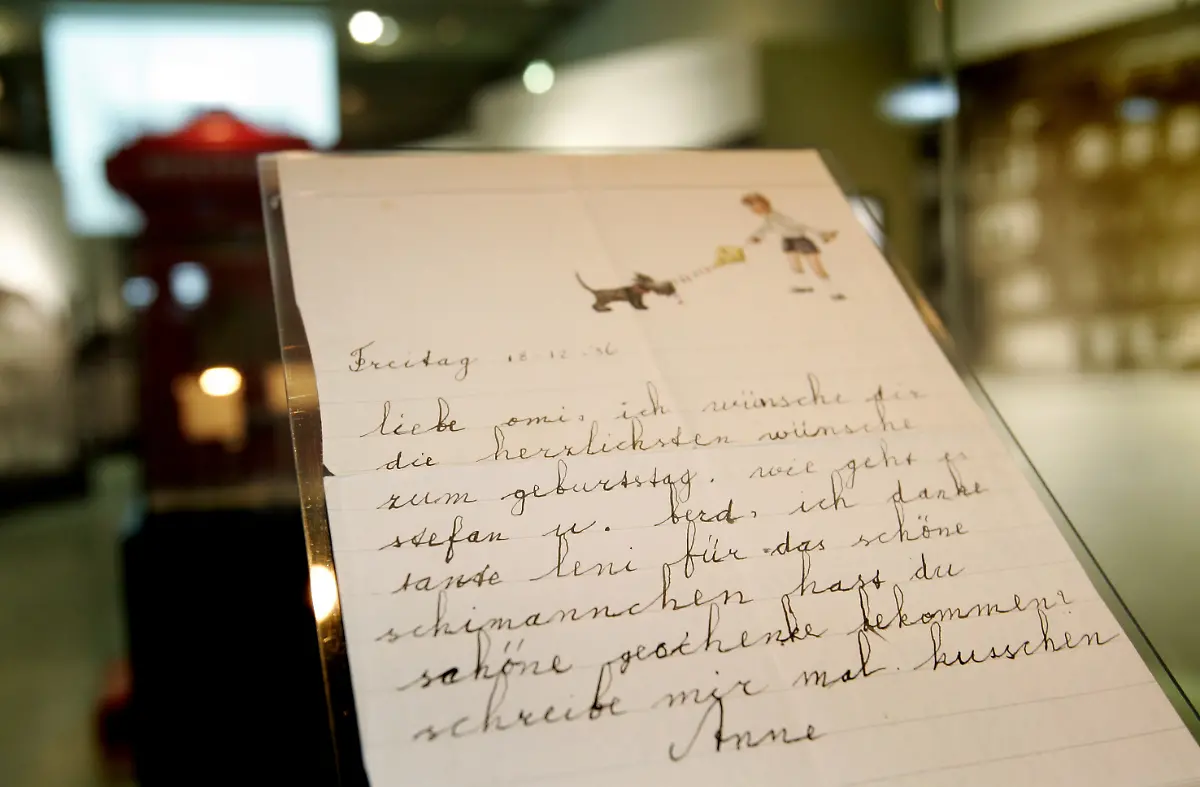 Freitag 18-12-36
liebe omi, ich wünsche dir
die herzlichsten wünsche
zum geburtstag. wie geht es
stefan u. berd, ich danke
tante leni für das schöne
schimannchen hast du
schöne geschenke bekommen?
schreibe mir mal. kusschen
Anne